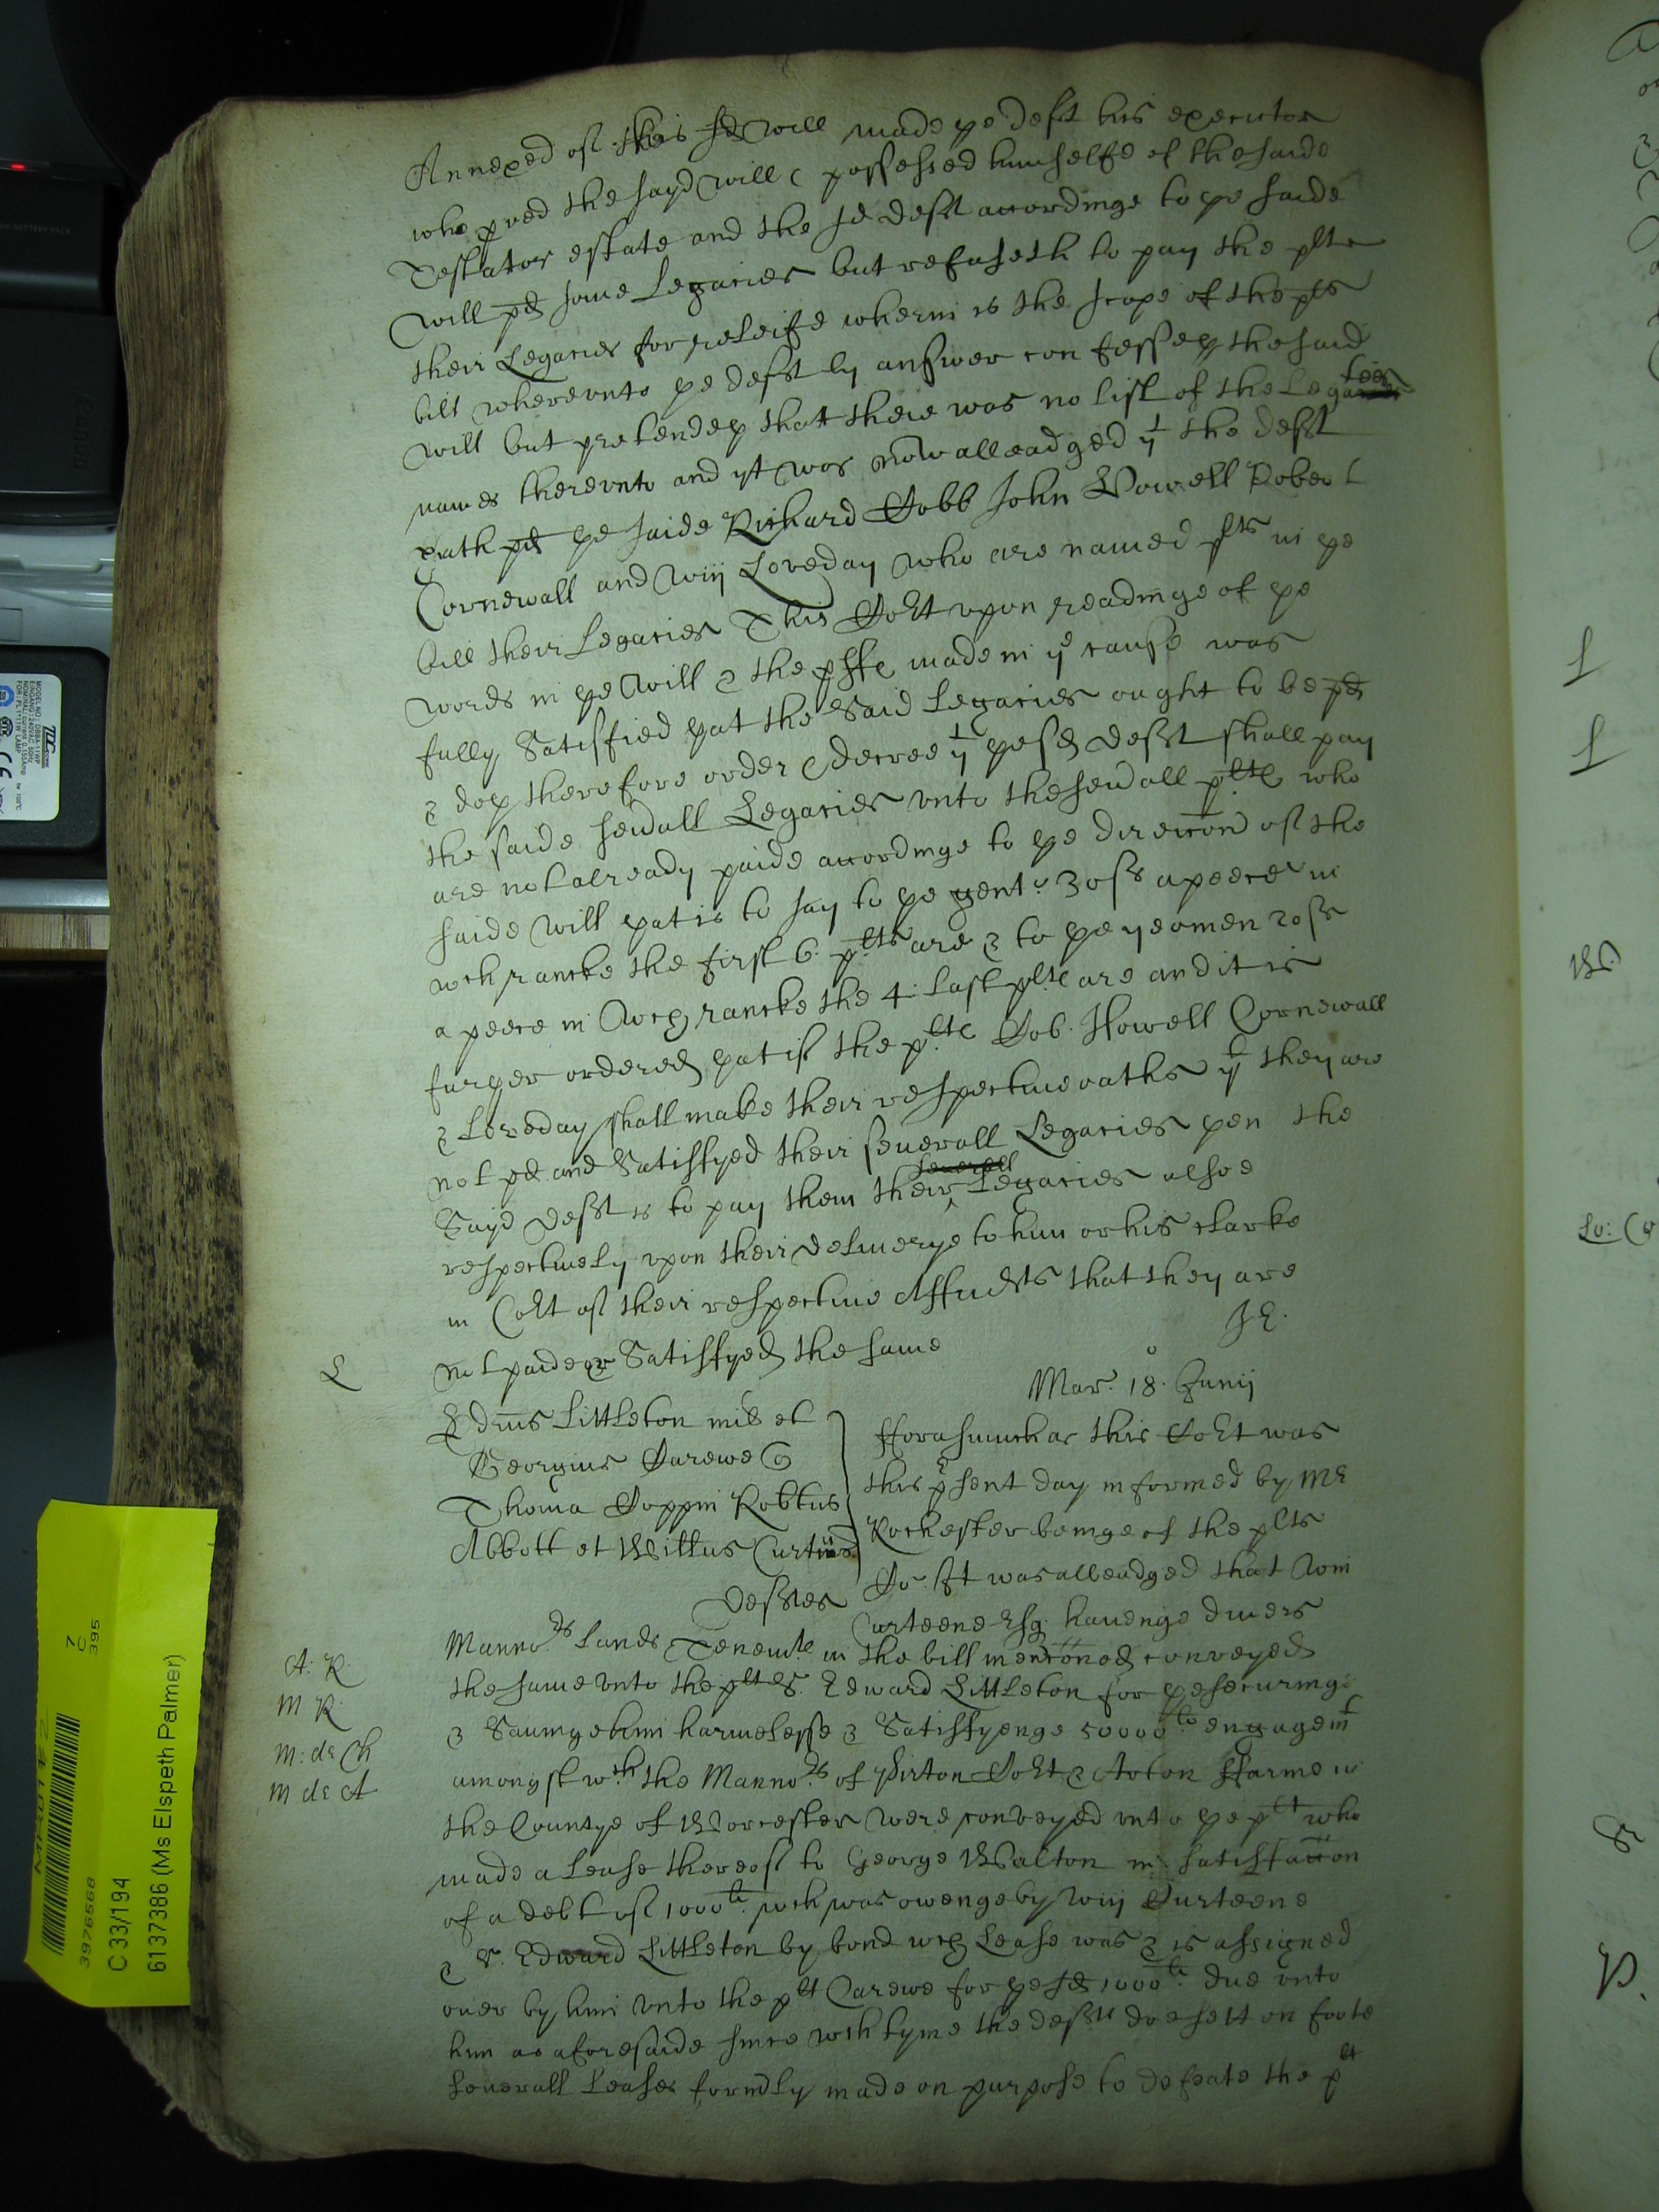 Annexed of this sd will made ye deft his executor
who pved the sayd will & possessed himselfe of the saide
Testators estate and the sd deft accordinge to ye saide
will pd some Legacies but refuseth to pay the plts
their Legacies for releife wherin is the scope of the plts
bill wherevnto ye deft by answer confesseth the said
will but pretendeth that there was no list of the Legatees
names therevnto and yt was now alleadged yt the deft
hath pd ye saide Richard Cobb John Howell Robert
Cornewall and Wm Loveday who are named plts in ye
bill their Legacies This Cort vpon readinge of ye
words in ye will & the pffe made in ye cause was
fully Satisfied yat the said Legacies ought to be pd
& doth therefore order & decree yt ye sd deft shall pay
the saide seuall Legacies vnto the seuall plts who
are not already paide accordinge to ye direccon of the
saide will yat is to say to ye gent: 30ss a peece in
wch rancke the first 6. plts are & to ye yeomen 20ss
a peece in wch rancke the 4 last plts are and it is
further ordered yat if the plts Cob. Howell Cornewall
& Loveday shall make their respectiue oaths yt they are
not pd and Satisfyed their seuerall Legacies then the
seuerall
Sayd deft is to pay them their Legacies alsoe
respectiuely vpon their deliuerye to him or his clarke
in Cort of their respective Affidts that they are
not paide or Satisfyed the same
JE.
L
Mar. 18o. Junij
Edrus Littleton mil et
Georgius Carewe
Thoma Coppin Robtus
Abbott et Willus Curtius
Deftes
fforasmuch as this Cort was
this psent day informed by Mr
Rochester beinge of the plts
Co. It was alleadged that Wm
Curteene Esq hauenge divers
Mannors Lands Tenemts in the bill menconed conveyed
the same vnto the plt Sr. Edward Littleton for ye securinge
& Saueinge him harmelesse & Satisfyenge 50000li engagemt
amongst wch the Mannors of Pirton Cort & Acton ffarme in
the Countye of Worcester were conveyed vnto ye plt who
made a Lease thereof to George Walton in satisfaccon
of a debt of 1000li wch was owenge by Wm Curteene
& Sr. Edward Littleton by bond wch Lease was & is assigned
ouer by him vnto the plt Carewe for ye sd 1000li due vnto
him as aforesaide since wch tyme the defts doe sett on foote
seuerall Leases formdly made on purpose to defeate the plt
A: R.
M R.
M: de Ch
M de A
MODEL NO: D88A-11WP
3976568
7
C
395
C 33/194
6137386 (Ms Elspeth Palmer)